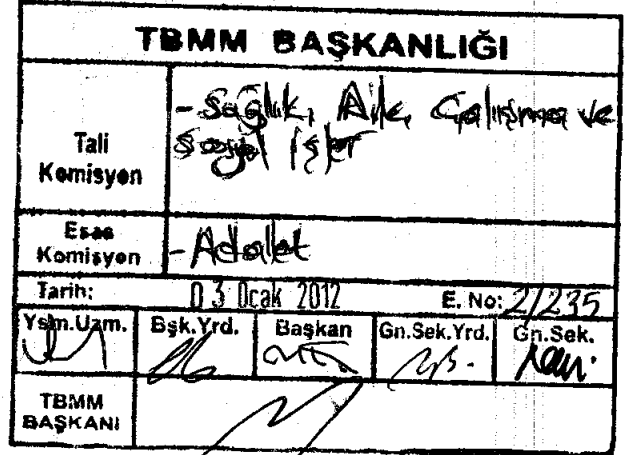 TBMM BAŞKANLIĞI
Tali Komisyon
- Sağlık, Aile, Çalışma ve
Sosyal İşler
Esas Komisyon
- Adalet
Tarih: 03 Ocak 2012 E. No: 2/235
Ysm.Uzm. Bşk.Yrd. Başkan Gn.Sek.Yrd. Gn.Sek.
TBMM
BAŞKANI